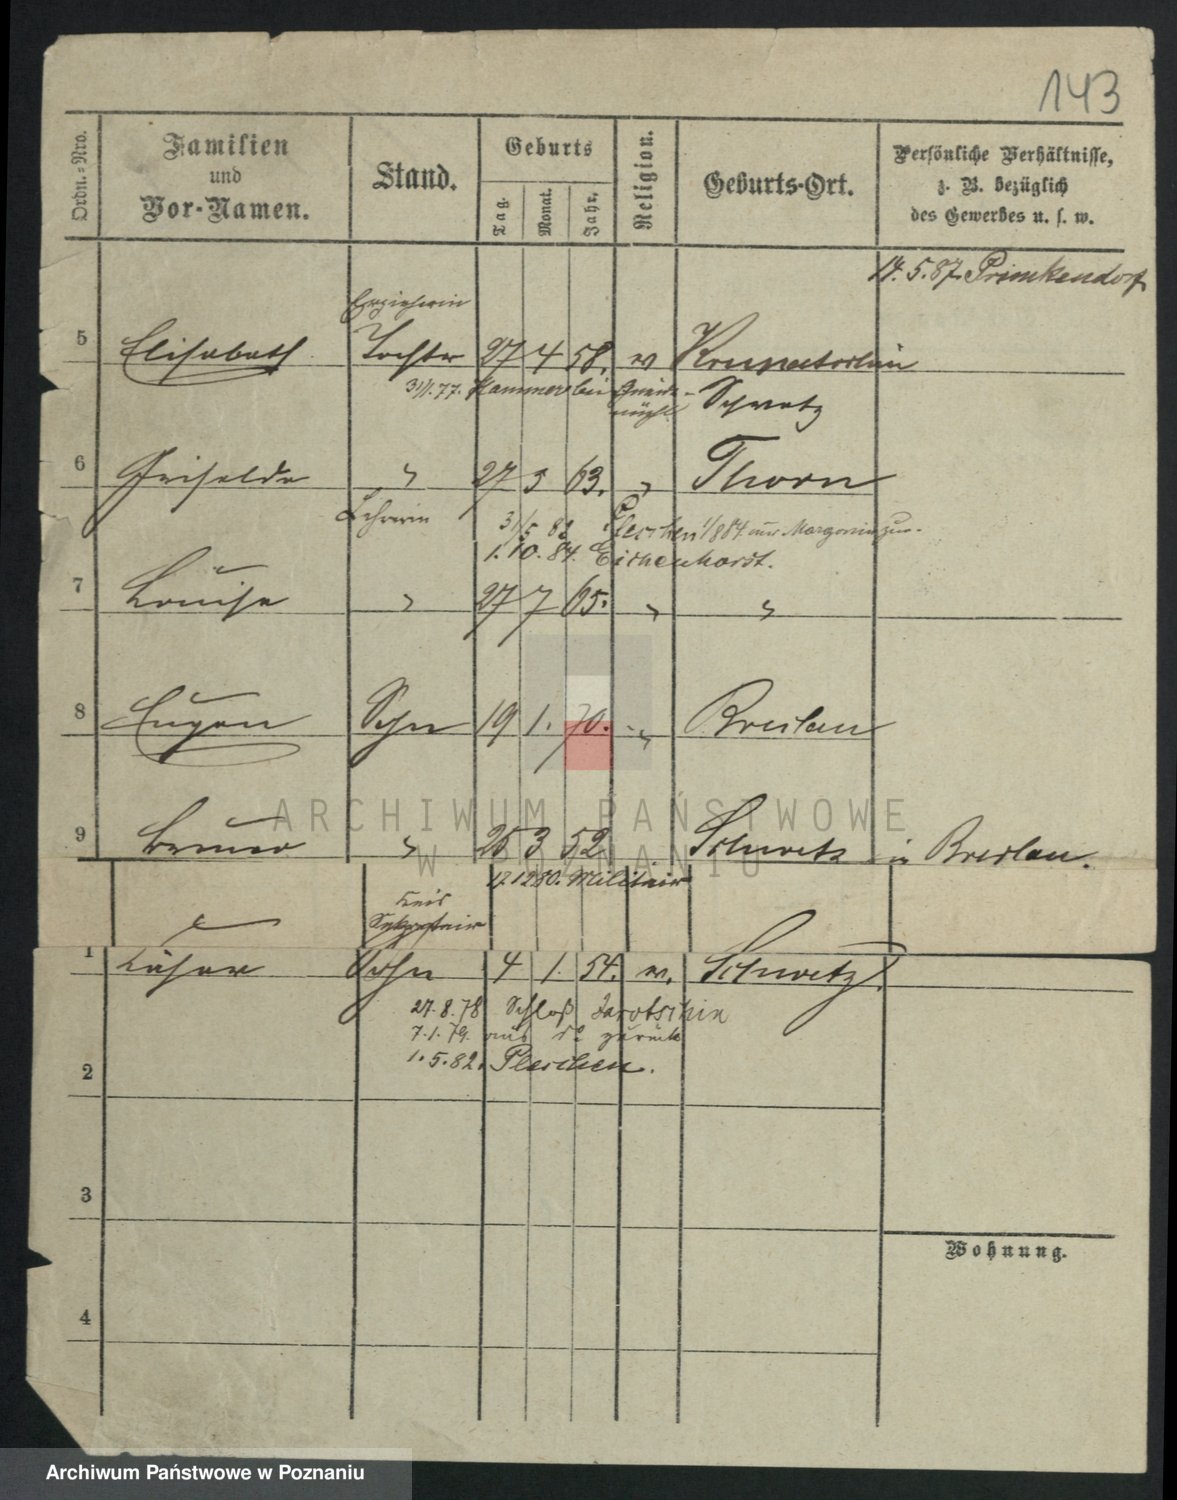 143
Ordn.-Nro.
Familien
und
Vor-Namen.
Stand.
Geburts
Tag.
Monat.
Jahr.
Religion.
Geburts-Ort.
Persönliche Verhältnisse,
z. B. bezüglich
des Gewerbes u. s. w.
14. 5. 87. Primkendorf
Erzieherin
5 Elisabeth Tochter 27 4 58. ev
31/1. 77. Hammer bei
Schwetz
6 Griselda " 27 3 63. " Thorn
Lehrerin 31/5 82 Pleschen 1/8 84 aus Margonin zur.
1. 10. 84. Eichenhorst.
7 Louise " 27 7 65. " "
8 Eugen Sohn 19 1. 70. " Breslau
ARCHIWUM PAŃSTWOWE
W POZNANIU
9 Bruno " 25 3 52 Schwetz in Breslau.
17. 12 80. Militair
Kreis
Sekretair
1 Cäsar Sohn 4 1. 54. ev. Schwetz
27. 8. 78 Schloß Jarotschin
7. 1. 79. aus do zurück
1. 5. 82. Pleschen.
2
3
Wohnung.
4
Archiwum Państwowe w Poznaniu